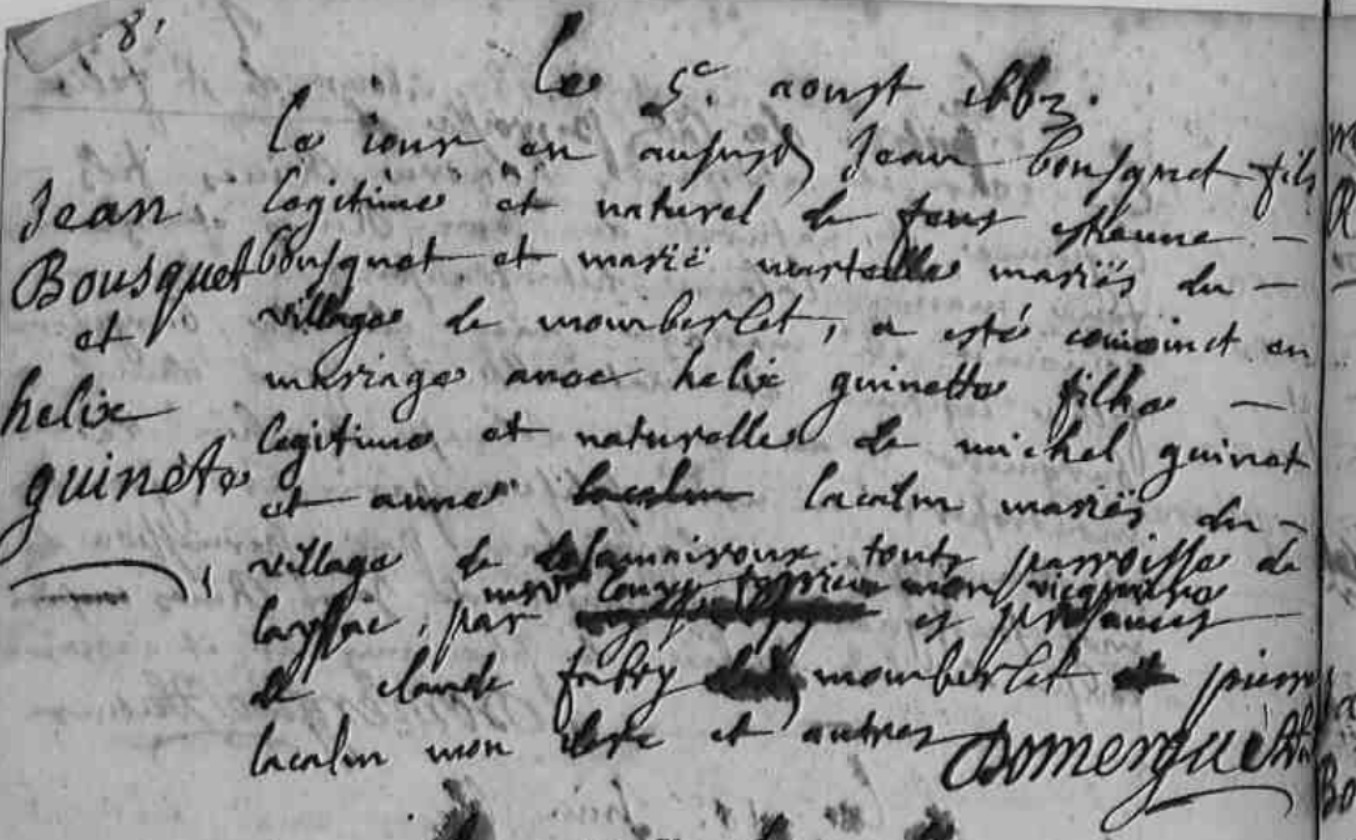 8.
Le 5e aoust 1662.
Jean
Bousquet
et
helix
guinete
Le iour en Jean bousquet fils
legitime et naturel de feus estienne
bousquet et marie mariés du
village de momberlet, a esté conioinct en
mariage avec helix guinette filhe
legitime et naturelle de michel guinet
et anne lacalm lacalm mariés du
village de touts parroisse de
par mon vicquaire
et presances
de claude fabry momberlet et pierre
lacalm mon clerc et autres Domergue